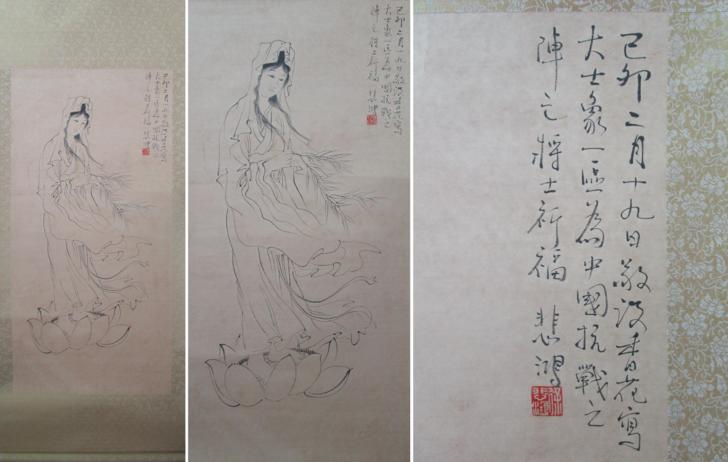 己卯二月十九日敬设香花寫
大士象一區為中國抗戰之
陣亡將士祈福 悲鴻